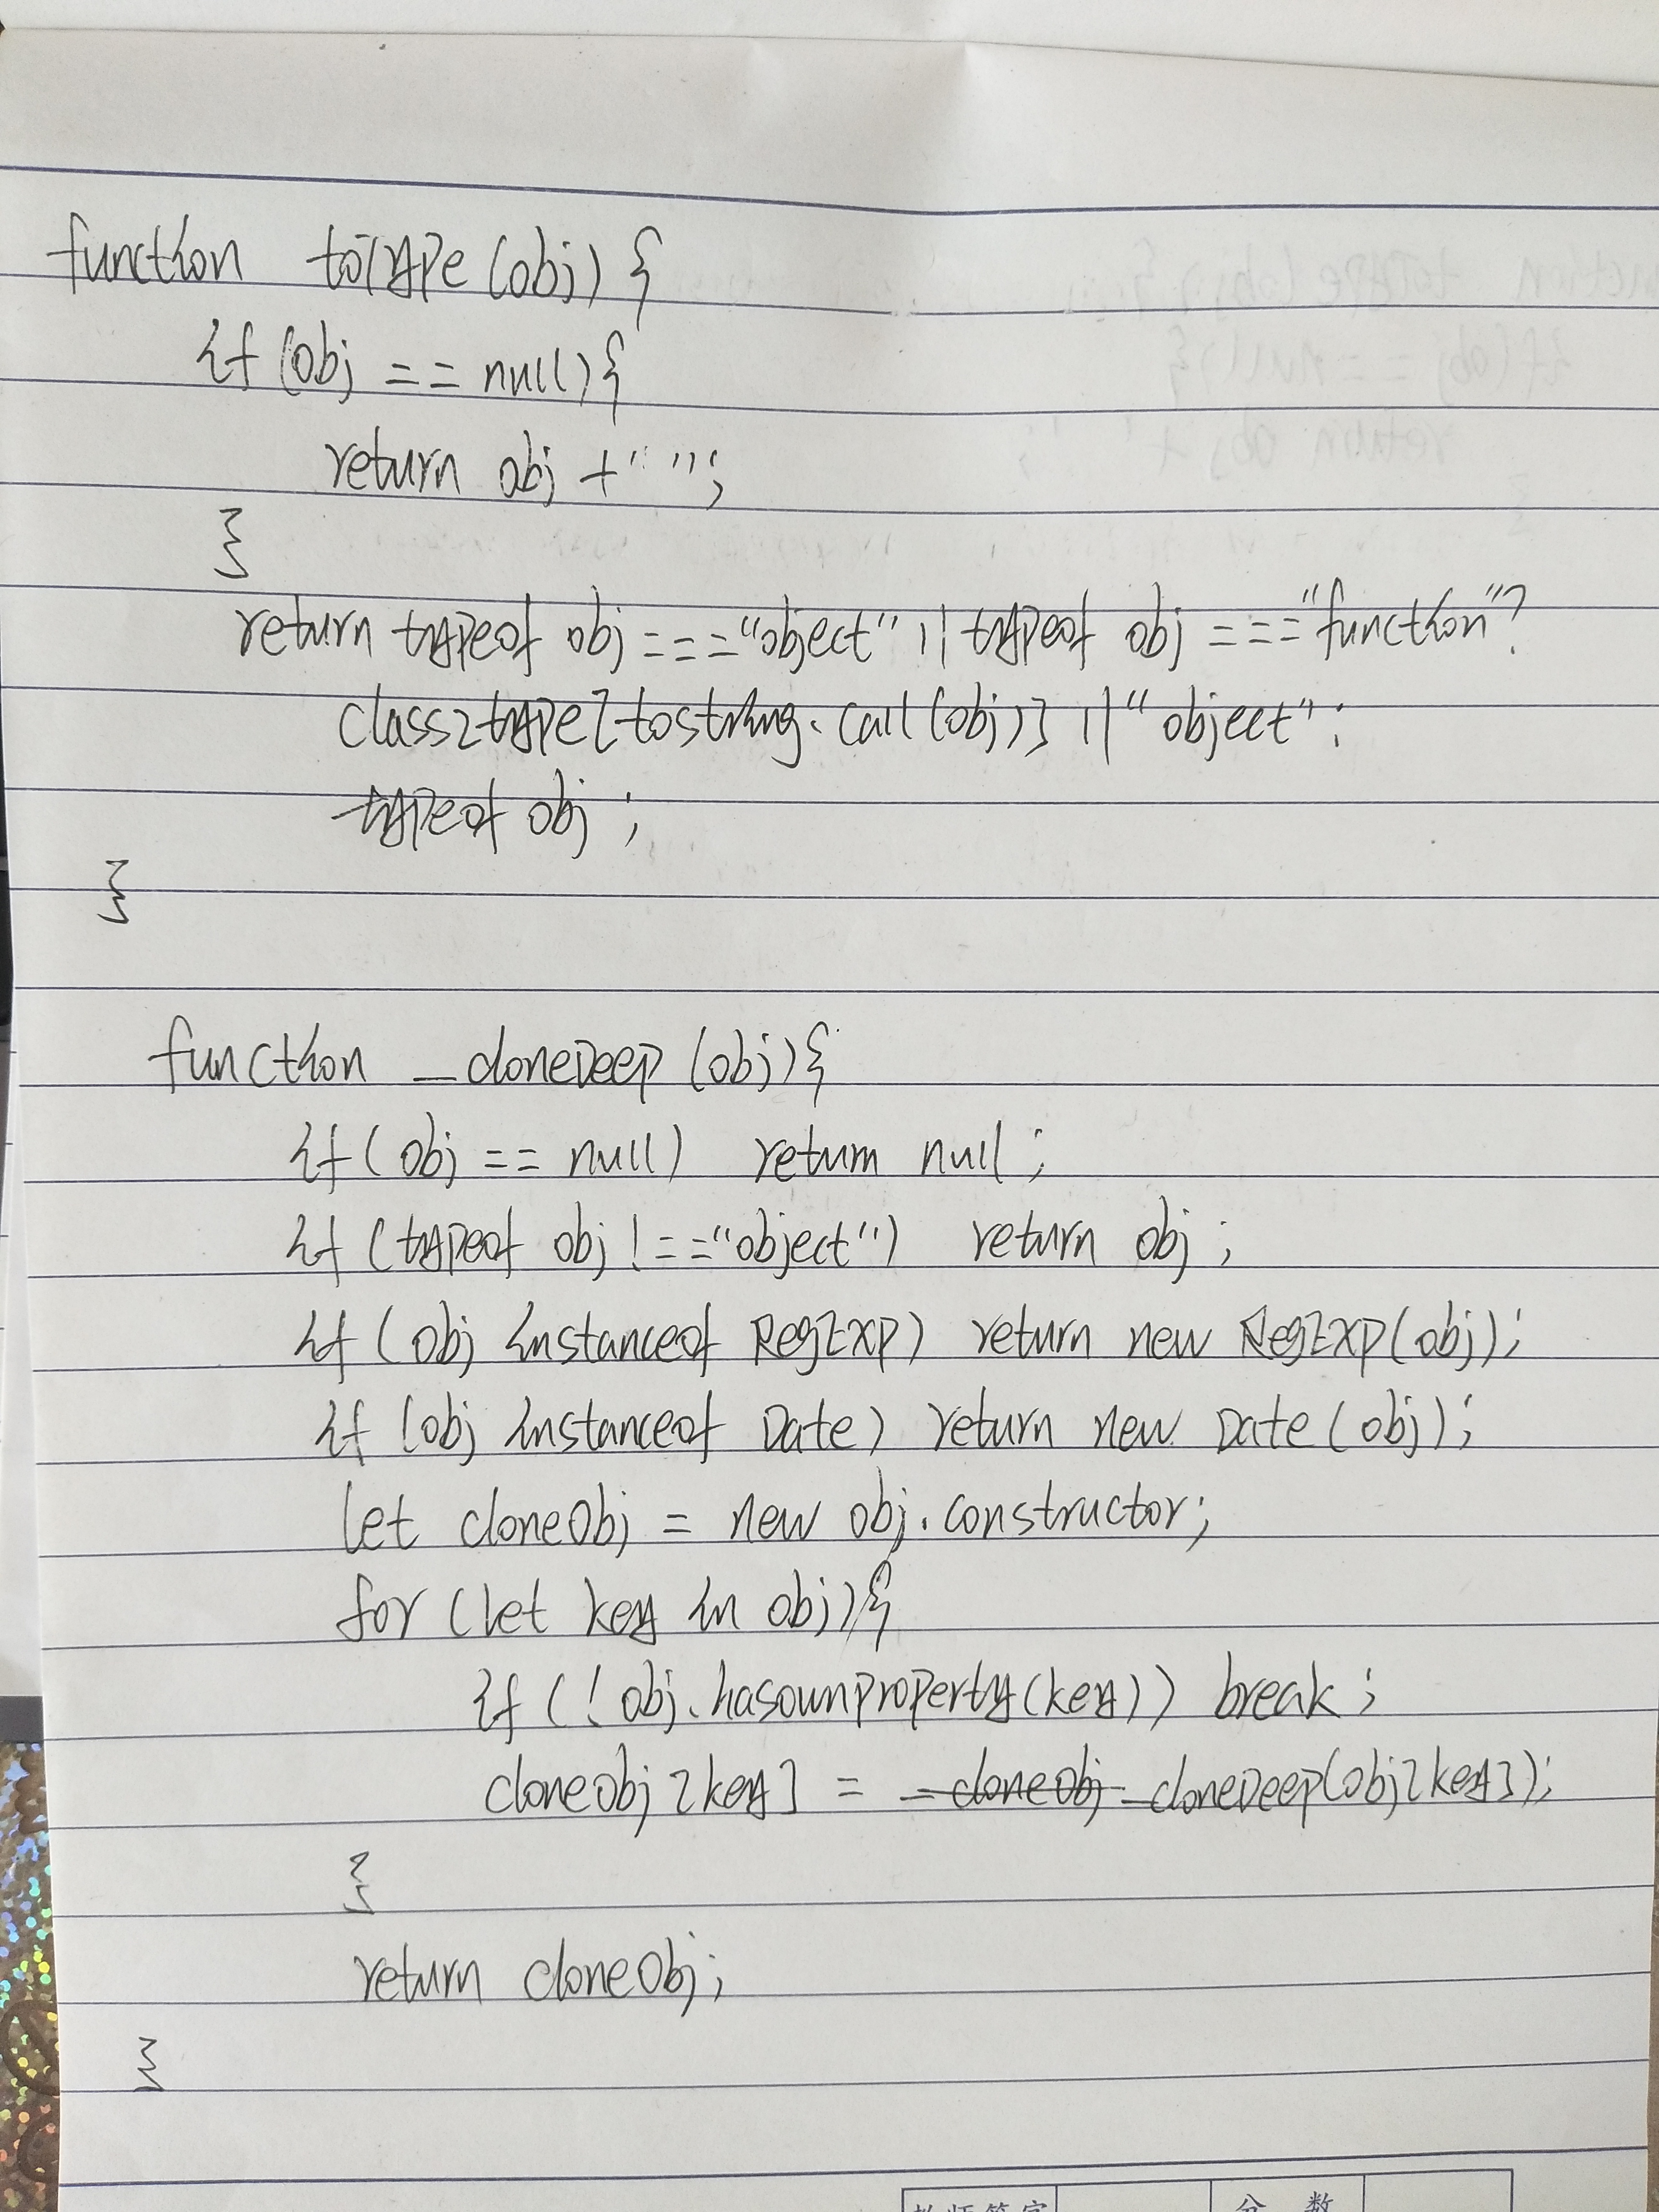 function toType(obj) {
if (obj == null){
return obj + "";
}
return typeof obj === "object" || typeof obj === "function" ?
class2type[toString.call(obj)] || "object" :
typeof obj ;
}
function _cloneDeep (obj){
if ( obj == null) return null ;
if (typeof obj !== "object") return obj ;
if ( obj instanceof RegExp) return new RegExp(obj);
if (obj instanceof Date) return new Date(obj);
let cloneObj = new obj.constructor;
for (let key in obj){
if (! obj.hasownproperty(key)) break ;
cloneObj[key] = _cloneObj _cloneDeep(obj[key]);
}
return cloneObj;
}
教师签字 分 数